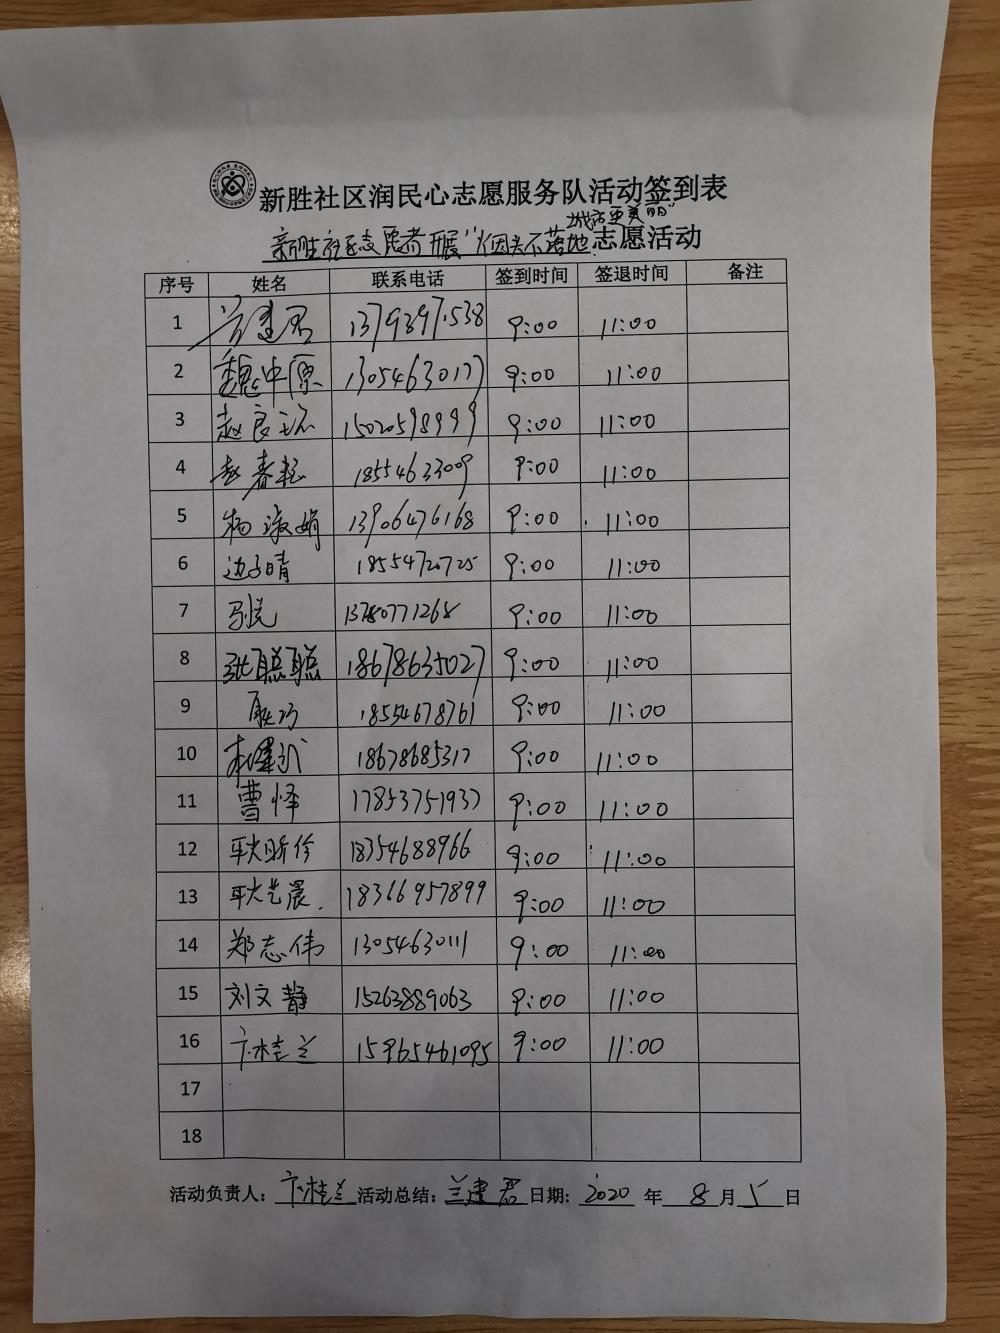 新胜社区润民心志愿服务队活动签到表
城市更美丽"
新胜社区志愿者开展"烟头不落地 志愿活动
序号 姓名 联系电话 签到时间 签退时间 备注
1 兰建君 13793971538 9:00 11:00
2 魏中原 13054630177 9:00 11:00
3 赵良 15020598999 9:00 11:00
4 赵春 18554633009 9:00 11:00
5 杨淑娟 13906476168 9:00 11:00
6 边子晴 18554720725 9:00 11:00
7 马悦 13780771268 9:00 11:00
8 张聪聪 18678635027 9:00 11:00
9 18554678761 9:00 11:00
10 18678685317 9:00 11:00
11 曹怿 17853751937 9:00 11:00
12 耿昕伶 18354688966 9:00 11:00
13 耿艺晨. 18366957899 9:00 11:00
14 郑志伟 13054630111 9:00 11:00
15 刘文静 15263889063 9:00 11:00
16 卞桂兰 15965461095 9:00 11:00
17
18
活动负责人: 卞桂兰 活动总结: 兰建君 日期: 2020 年 8 月 5 日